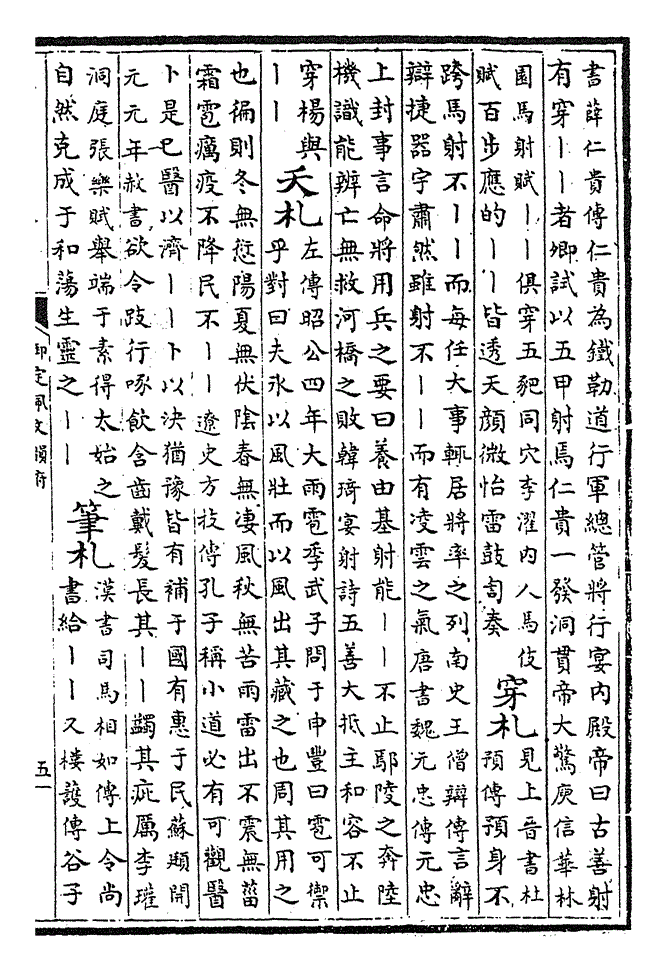 書薛仁貴傳仁貴為鐵勒道行軍總管將行宴内殿帝曰古善射
有穿丨丨者卿試以五甲射焉仁貴一發洞貫帝大驚庾信華林
園馬射賦丨丨俱穿五豝同穴李濯内人馬伎
賦百步應的丨丨皆透天顔微怡雷鼓訇奏
穿札
見上晉書杜
預傳預身不
跨馬射不丨丨而每任大事輒居將率之列南史王僧辯傳言辭
辯捷器宇肅然雖射不丨丨而有凌雲之氣唐書魏元忠傳元忠
上封事言命將用兵之要曰養由基射能丨丨不止鄢陵之奔陸
機識能辨亡無救河橋之敗韓琦宴射詩五善大抵主和容不止
穿楊與
丨丨
夭札
左傳昭公四年大雨雹季武子問于申豐曰雹可禦
乎對曰夫氷以風壯而以風出其藏之也周其用之
也徧則冬無愆陽夏無伏陰春無淒風秋無苦雨雷出不震無菑
霜雹癘疫不降民不丨丨遼史方技傳孔子稱小道必有可觀醫
卜是已醫以濟丨丨卜以決猶豫皆有補于國有惠于民蘇頲開
元元年赦書欲令跂行啄飲含齒戴髮長其丨丨蠲其疵厲李瓘
洞庭張樂賦舉端于素得太始之
自然克成于和蕩生靈之丨丨
筆札
漢書司馬相如傳上令尚
書給丨丨又樓護傳谷子
御定佩文韻府
五一